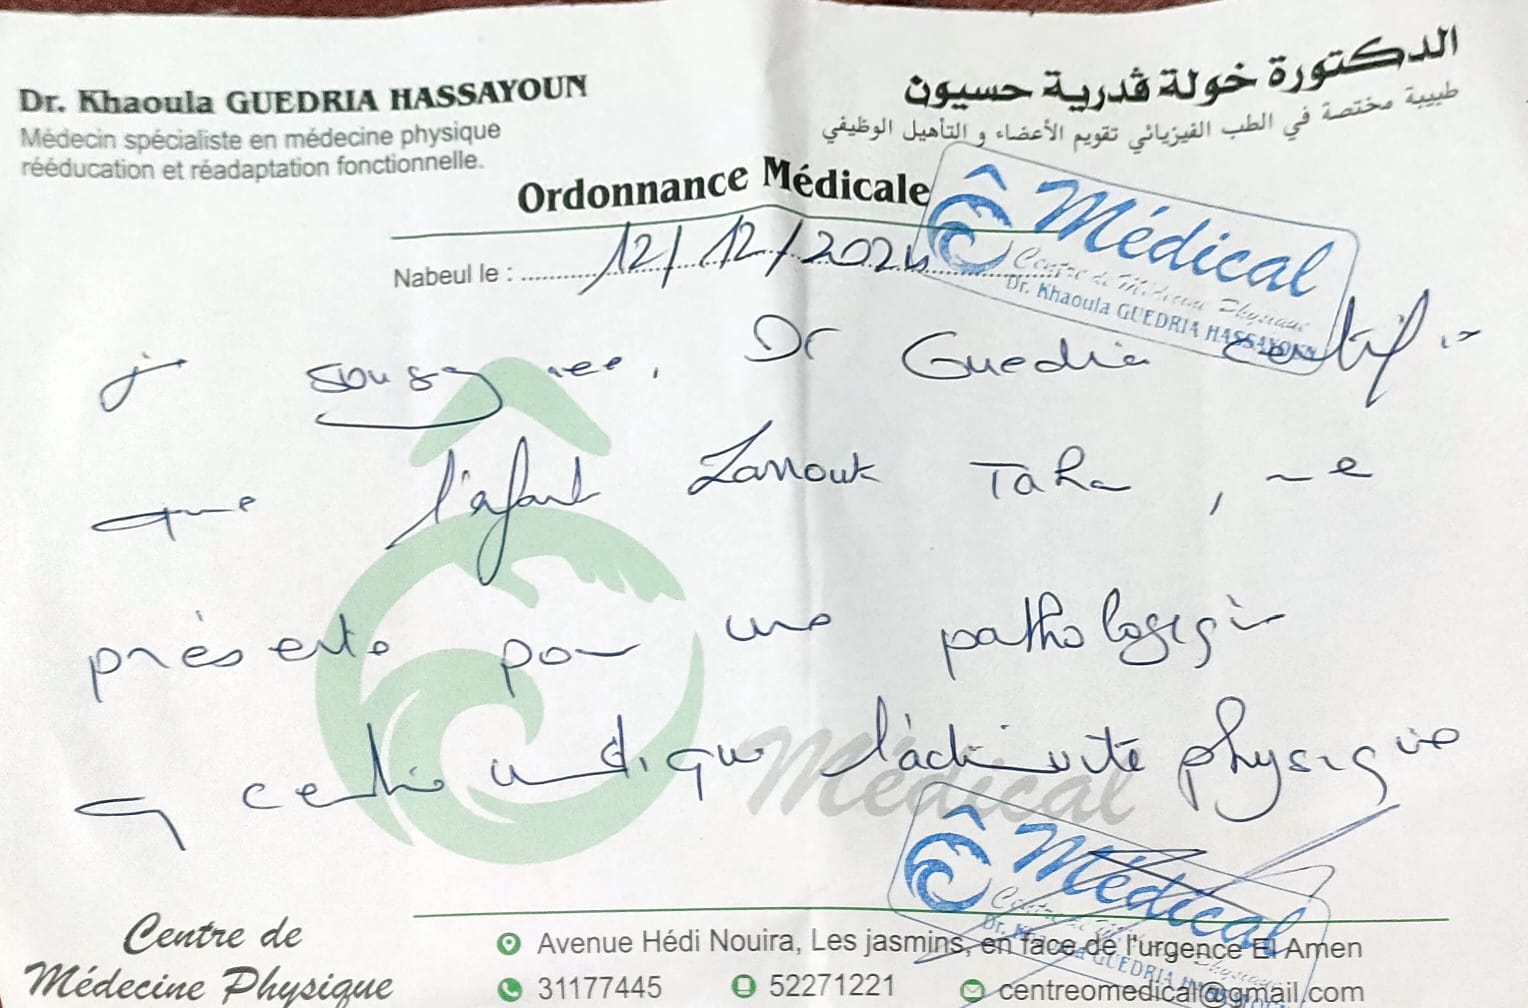 Dr. Khaoula GUEDRIA HASSAYOUN
Médecin spécialiste en médecine physique
rééducation et réadaptation fonctionnelle.
الدكتورة خولة ڤدرية حسيون
طبيبة مختصة في الطب الفيزيائي تقويم الأعضاء و التأهيل الوظيفي
Ordonnance Médicale
Nabeul le : 12/12/2024
Médical
Centre de Médecine Physique
Dr. Khaoula GUEDRIA HASSAYOUN
je sousignee, Dr Guedria certifie
que l'enfant Zarrouk Taha, ne
présente pas une pathologie
q contre indique l'activité physique
Médical
Médical
Centre de Physique
Dr. Khaoula GUEDRIA HASSAYOUN
Centre de
Médecine Physique
Avenue Hédi Nouira, Les jasmins, en face de l'urgence El Amen
31177445 52271221 centreomedical@gmail.com